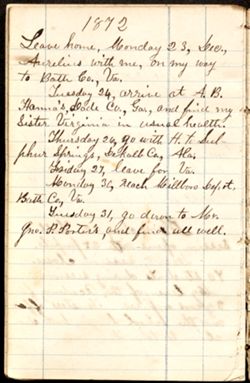 1872
Leave home, Monday 23, Dec,
Aurelius with me, on my way
to Bath Co, Va.
Tuesday 24, arrive at A. B.
Hanna's, Dade Co, Ga, and find my
Sister Virginia in usual health.
Thursday 26, go with H. to Sul-
phur Springs, DeKalb Co, Ala.
Friday 27, leave for Va.
Monday 30, reach Millboro Depot.
Bath Co, Va.
Tuesday 31, go down to Mr.
Jno. P. Porter's, and find all well.